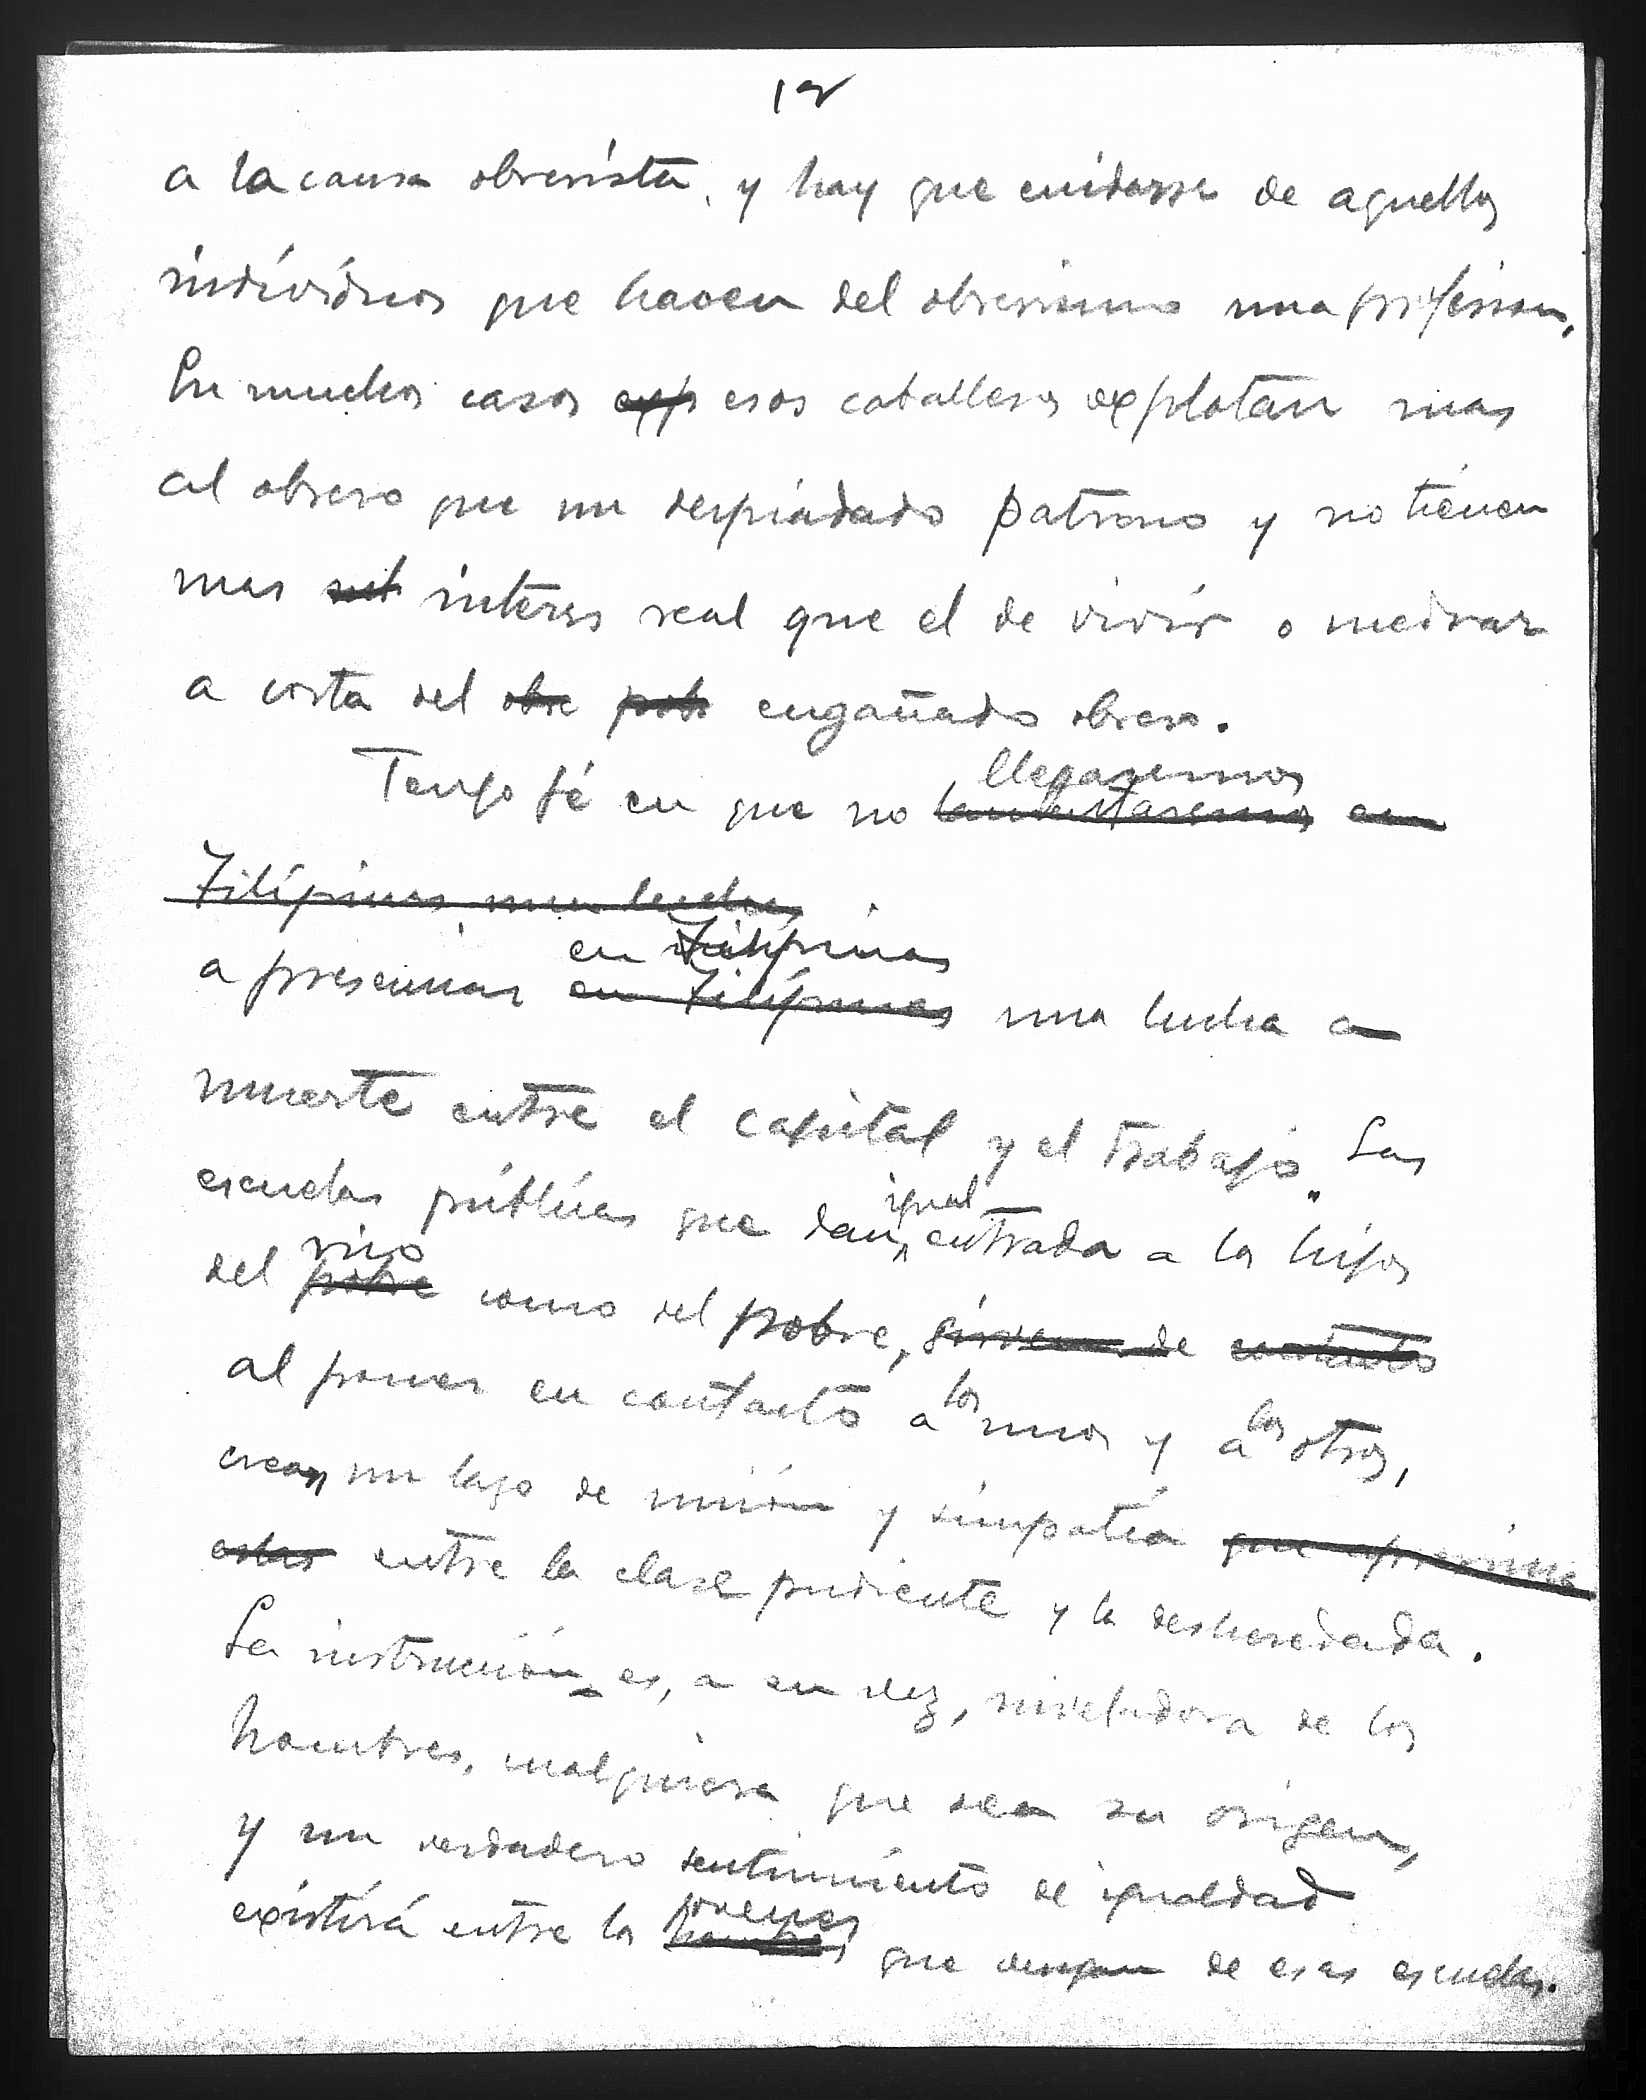 12
a la causa obrerista, y hay que cuidarse de aquellos
individuos que hacen del obrerismo una profesion.
En muchos casos esos caballeros explotan mas
al obrero que un despiadado patrono y no tienen
mas interes real que el de vivir o medrar
a costa del obre pob engañado obrero.
llegaremos
Tengo fé en que no en
Filipinas una lucha
en Filipinas
a presenciar en Filipinas una lucha a
muerte entre el capital y el trabajo. Las
igual
escuelas públicas que dan entrada a los hijos
rico
del pobre como del pobre, sirven de contacto
al poner en contacto a los unos y a los otros,
crean un lazo de unión y simpatía que aproxima
entre la clase pudiente y la desheredada.
La instrucción es, a su vez, niveladora de los
hombres, cualquiera que sea su origen,
y un verdadero sentimiento de igualdad
jovenes
existirá entre los hombres que vengan de esas escuelas.